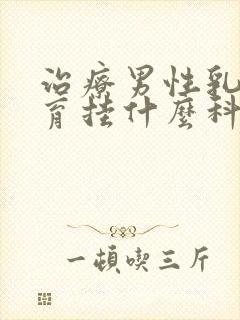 治療男性乳
育挂什麼科
一頓喫三斤